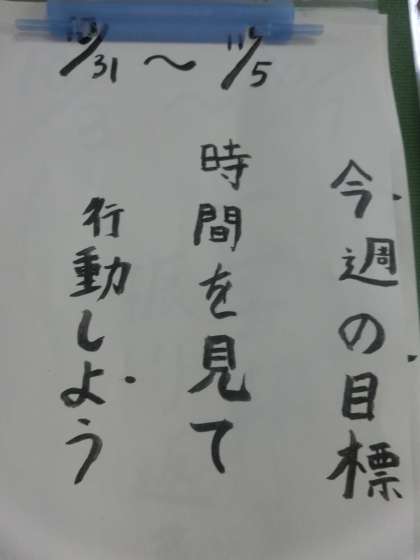 10/31 〜 11/5
今週の目標
時間を見て
行動しよう